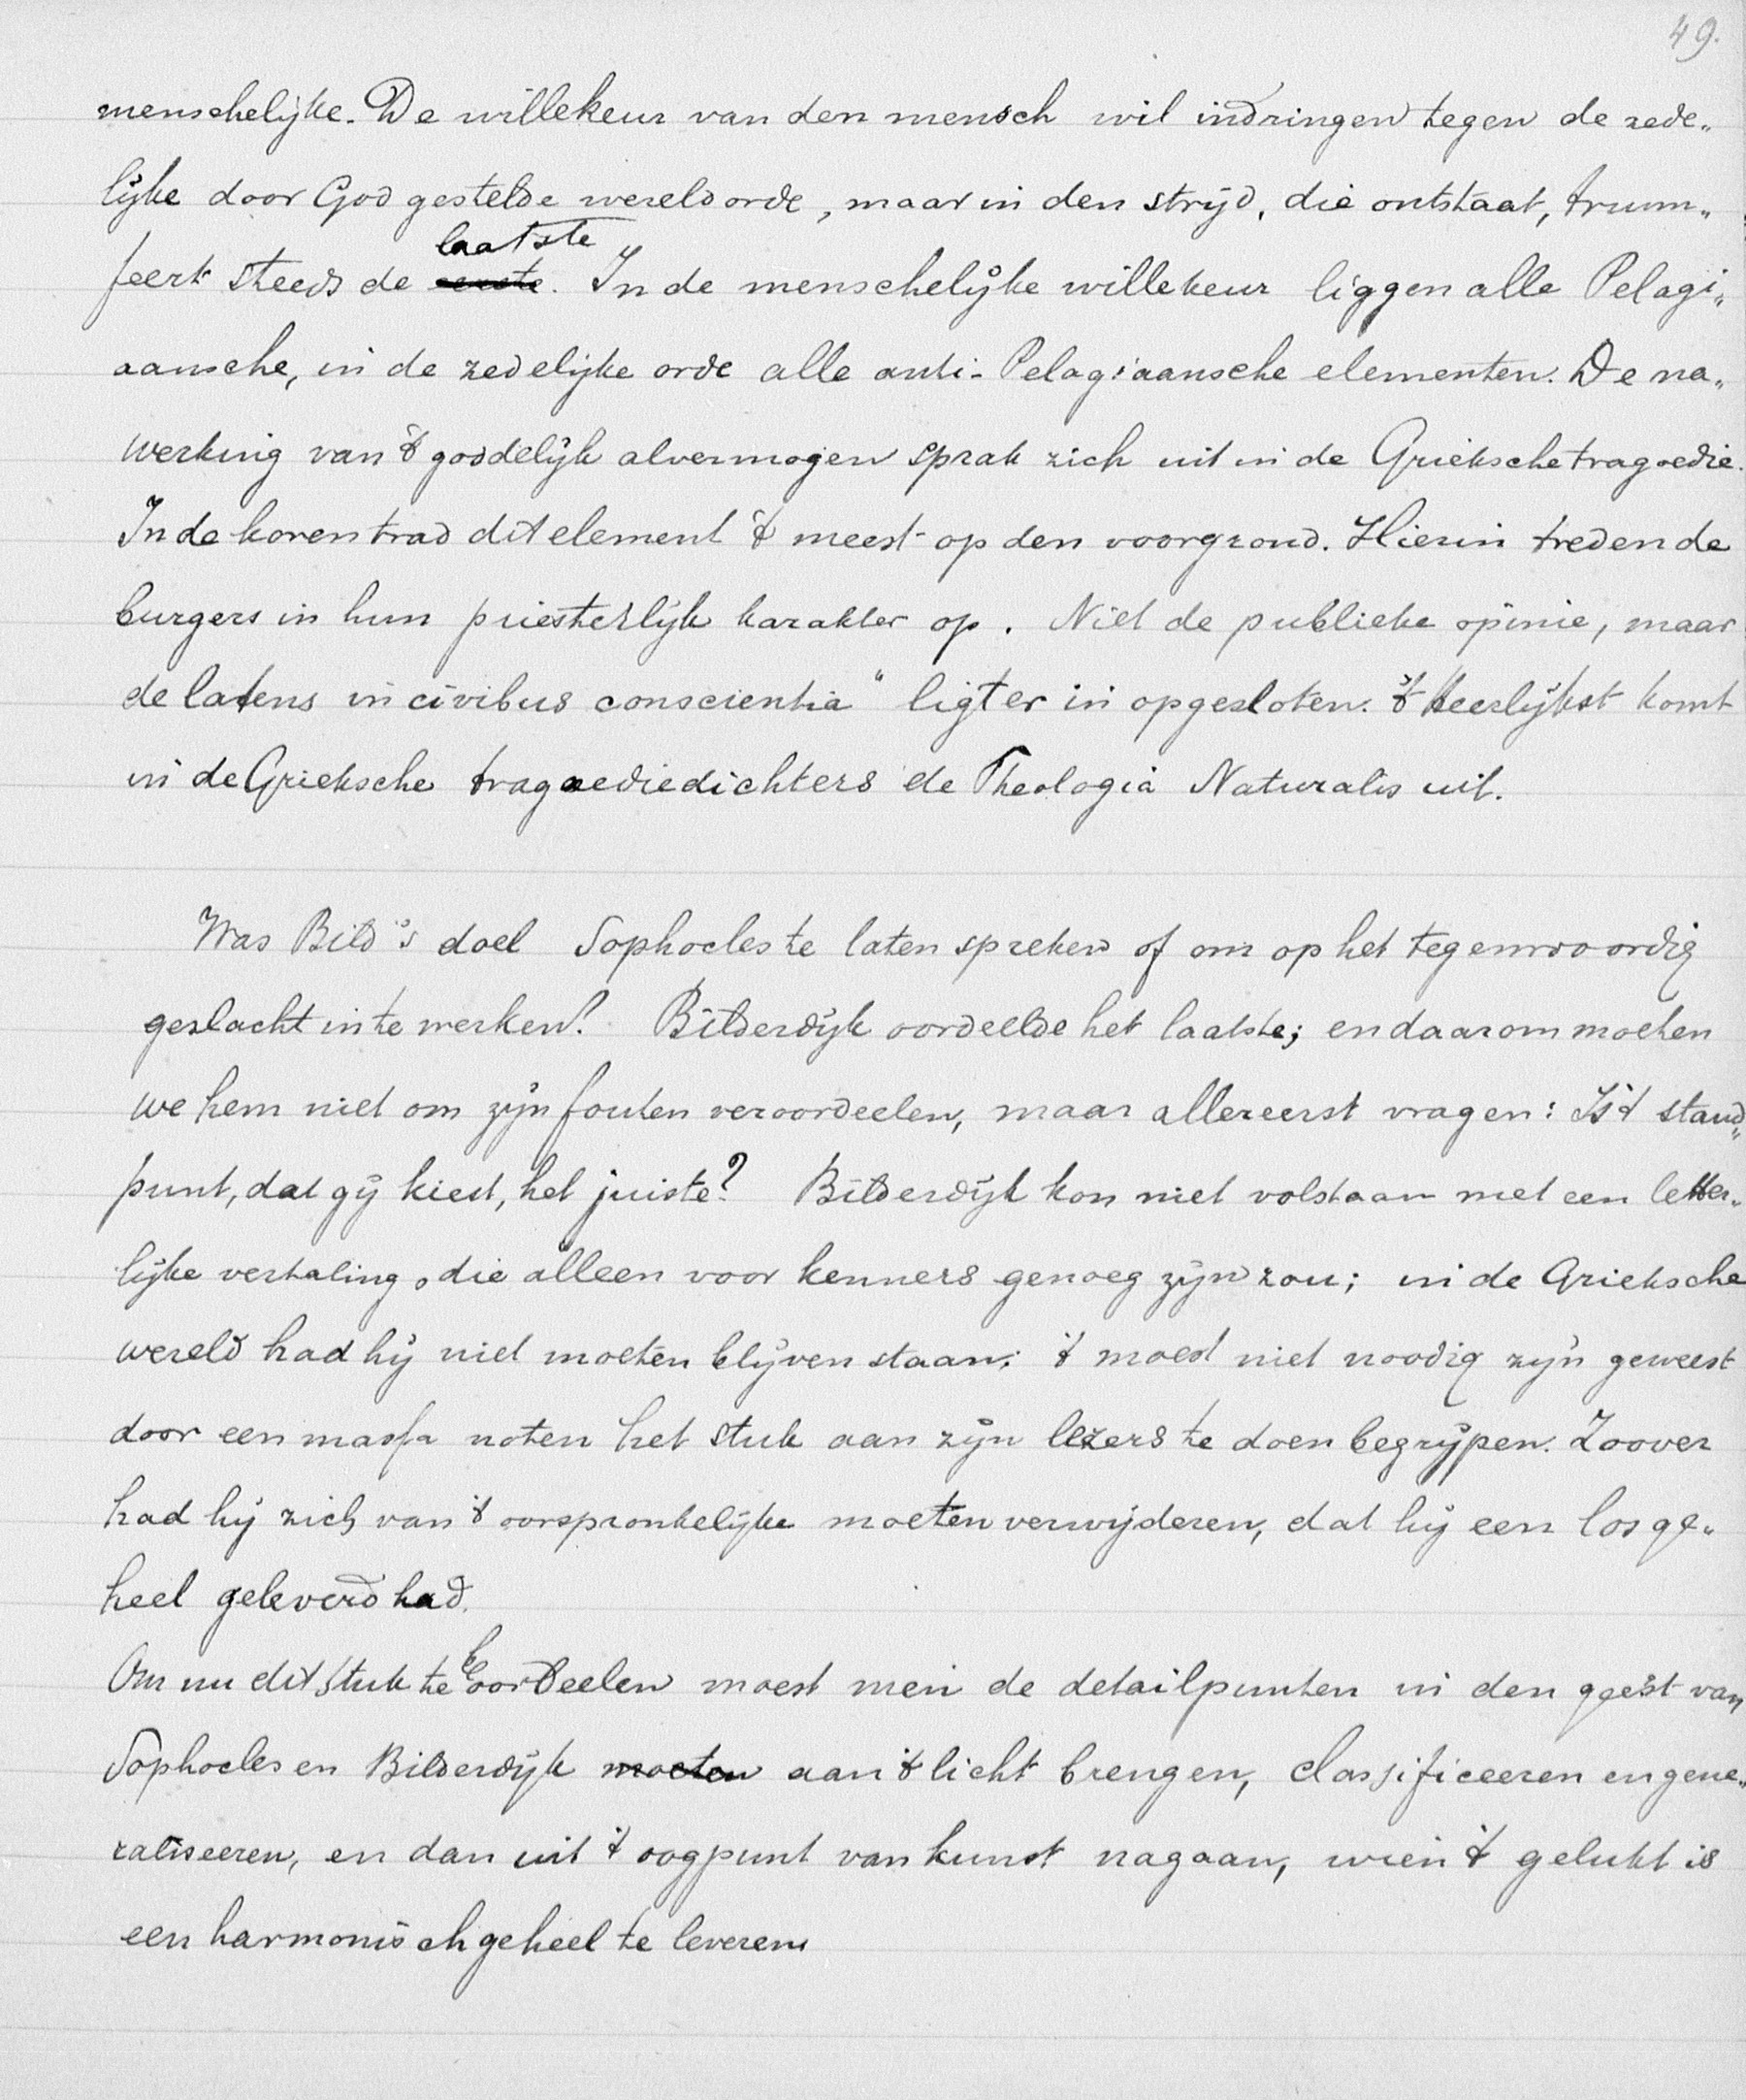 49.
menschelijke. De willekeur van den mensch wil indringen tegen de zede„
lijke door God gestelde wereldorde, maar in den strijd, die ontstaat, trium„
feert steeds de laatste eerste. In de menschelijke willekeur liggen alle Pelagi„
aansche, in de zedelijke orde alle anti-Pelagiaansche elementen. De na„
werking van 't goddelijk alvermogen sprak zich uit in de Grieksche tragoedie.
In de koren trad dit element 't meest op den voorgrond. Hierin treden de
burgers in hun priesterlijk karakter op. Niet de publieke opinie, maar
de latens in civibus conscientia" ligt er in opgesloten. 't Heerlijkst komt
in de Grieksche tragoediedichters de Theologia Naturalis uit.
Was Bild's doel Sophocles te laten spreken of om op het tegenwoordig
geslacht in te werken? Bilderdijk oordeelde het laatste; en daarom moeten
we hem niet om zijn fouten veroordeelen, maar allereerst vragen: Is 't stand„
punt, dat gij kiest, het juiste? Bilderdijk kon niet volstaan met een letter„
lijke vertaling, die alleen voor kenners genoeg zijn zou; in de Grieksche
wereld had hij niet moeten blijven staan; 't moest niet noodig zijn geweest
door een massa noten het stuk aan zijn lezers te doen begrijpen. Zoover
had hij zich van 't oorspronkelijke moeten verwijderen, dat hij een los ge„
heel geleverd had.
Om nu dit stuk te beoordeelen moest men de detailpunten in den geest van
Sophocles en Bilderdijk moeten aan 't licht brengen, classificeeren en gene„
raliseeren, en dan uit 't oogpunt van kunst nagaan, wien 't gelukt is
een harmonisch geheel te leveren